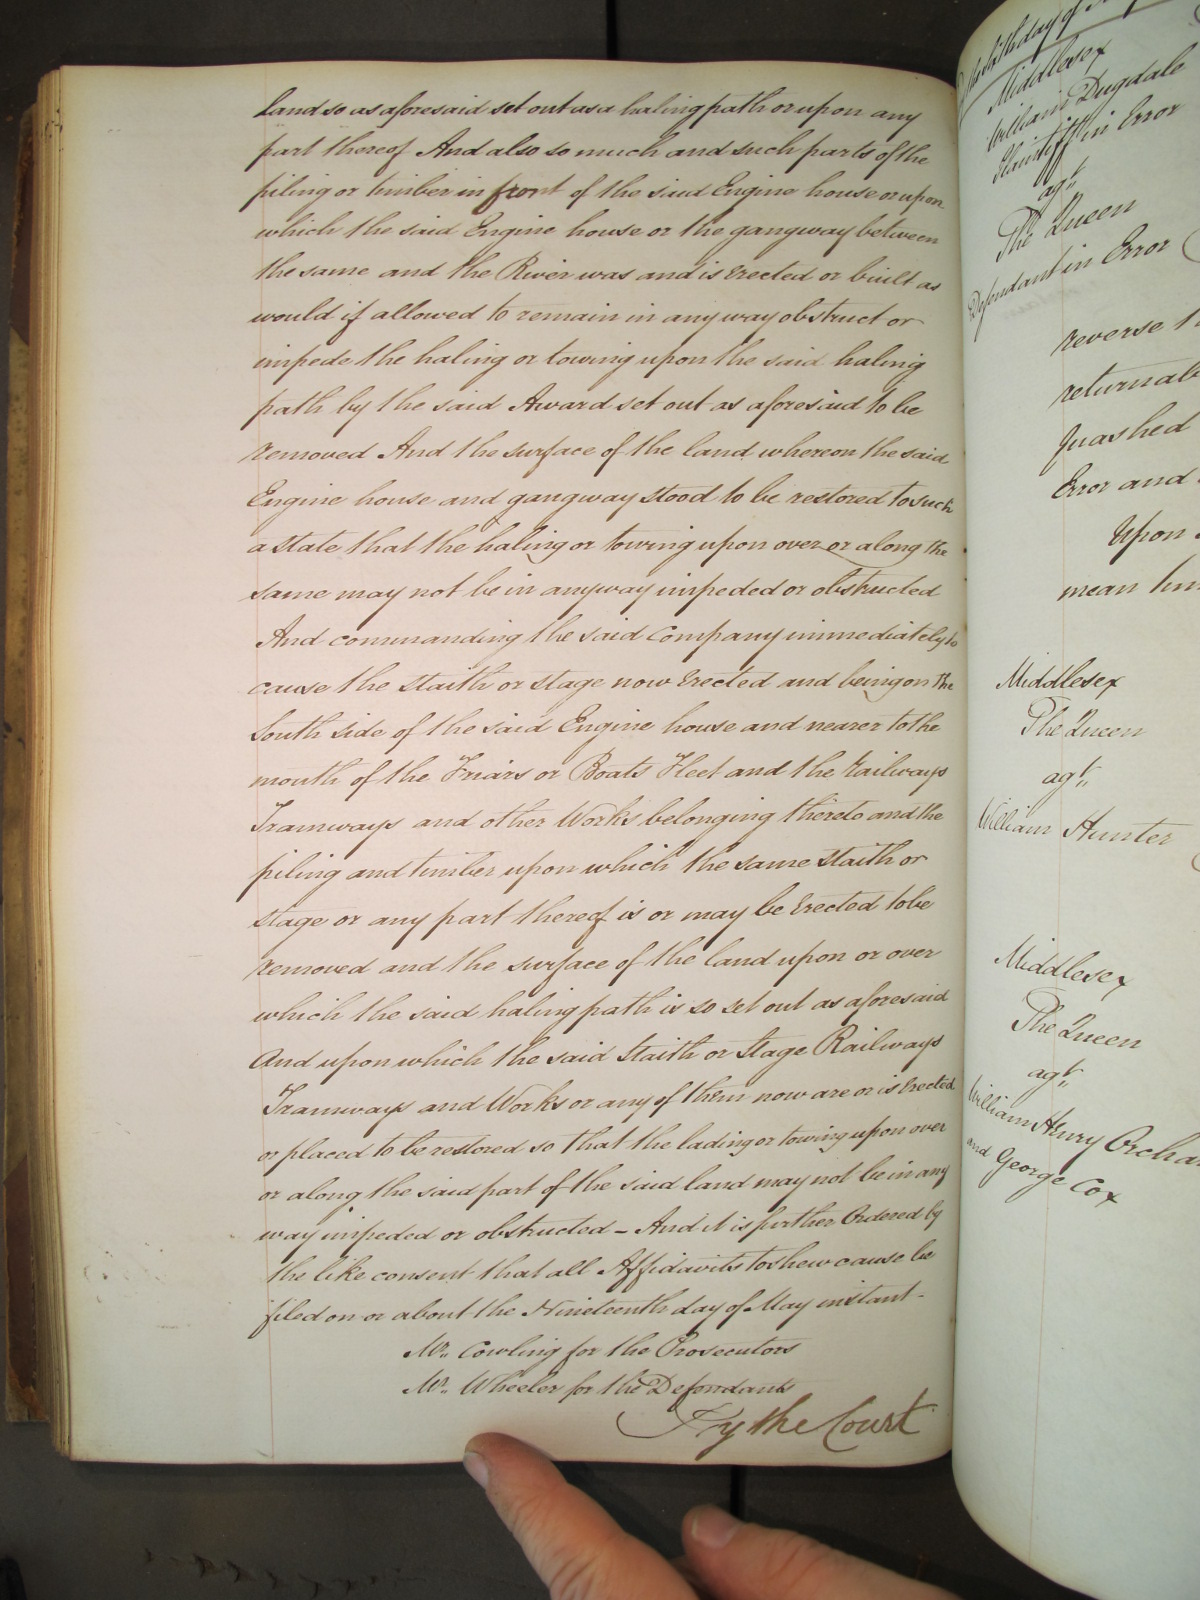 land so as aforesaid set out as a haling path or upon any
part thereof And also so much and such parts of the
piling or timber in front of the said Engine house or upon
which the said Engine house or the gangway between
the same and the River was and is Erected or built as
would if allowed to remain in any way obstruct or
impede the haling or towing upon the said haling
path by the said Award set out as aforesaid to be
removed And the surface of the land whereon the said
Engine house and gangway stood to be restored to such
a state that the haling or towing upon over or along the
same may not be in anyway impeded or obstructed
And commanding the said Company immediately to
cause the Staith or stage now Erected and being on the
South side of the said Engine house and nearer to the
mouth of the Friars or Boats Fleet and the Railways
Tramways and other Works belonging thereto and the
piling and timber upon which the same Staith or
stage or any part thereof is or may be Erected to be
removed and the surface of the land upon or over
which the said haling path is so set out as aforesaid
And upon which the said Staith or Stage Railways
Tramways and Works or any of them now are or is Erected
or placed to be restored so that the lading or towing upon over
or along the said part of the said land may not be in any
way impeded or obstructed – And it is further Ordered by
the like consent that all Affidavits to shew cause be
filed on or about the Nineteenth day of May instant -
Mr. Cowling for the Prosecutors
Mr. Wheeler for the Defendants
By the Court
day of
Middlesex
William Dugdale
Plaintiff in Error
agt.
The Queen
Defendant in Error
reverse
quashed
Error and
Upon
mean
Middlesex
The Queen
agt.
William Hunter
Middlesex
The Queen
agt.
William Henry
and George Cox